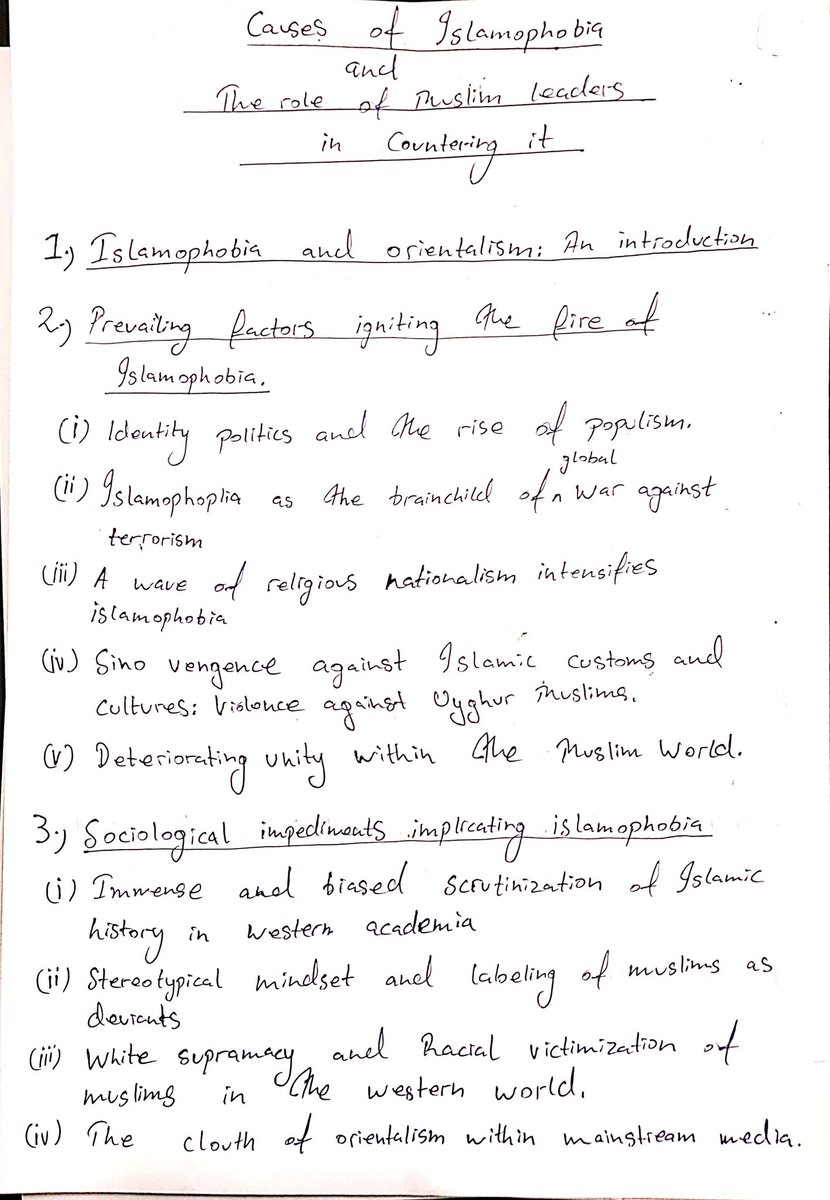 Causes of Islamophobia
and
The role of Muslim leaders
in Countering it
1.) Islamophobia and orientalism: An introduction
2.) Prevailing factors igniting the fire of
Islamophobia.
(i) Identity politics and the rise of populism.
global
(ii) Islamophoplia as the brainchild of ^ War against
terrorism
(iii) A wave of religious nationalism intensifies
islamophobia
(iv) Sino vengence against Islamic customs and
cultures: Violonce against Uyghur Muslims.
(v) Deteriorating unity within the Muslim World.
3.) Sociological impediments implicating islamophobia
(i) Immense and biased scrutinization of Islamic
history in western academia
(ii) Stereotypical mindset and labeling of muslims as
deviants
(iii) White supramacy and Racial victimization of
muslims in the western world.
(iv) The clouth of orientalism within mainstream media.